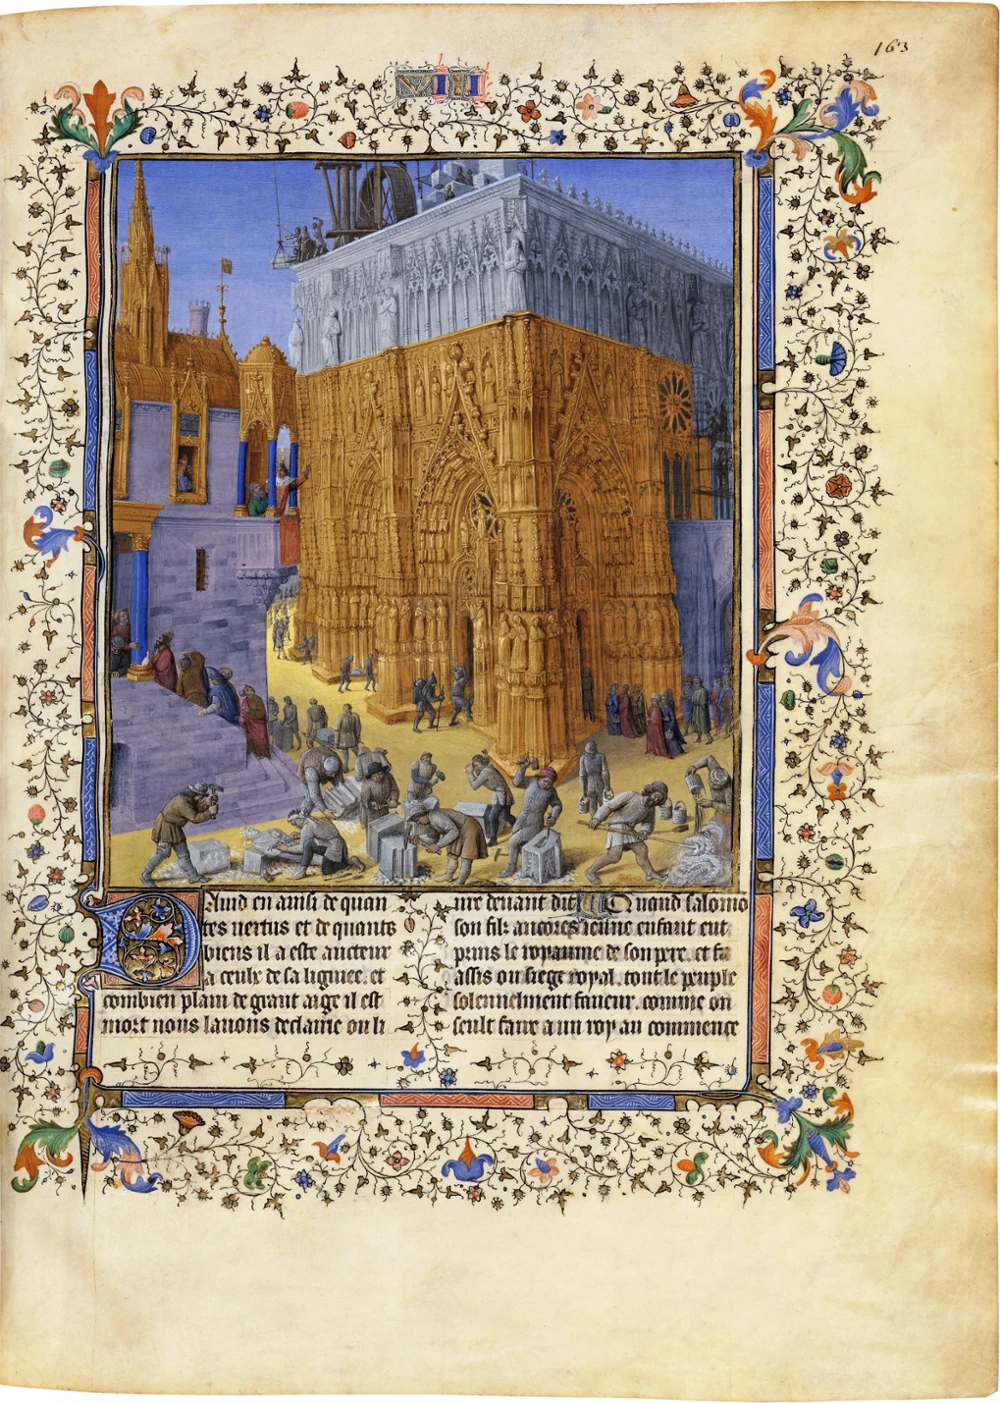 163
VIII
Dauid en ainsi de quan
tes uertus et de quants
biens il a este aucteur
a ceulx de sa ligniee. et
combien plain de grant aige il est
mort nous lauons declairie ou li
ure deuant dit Quand salomo
son filz ancores ieune enfant eut
prins le royaume de son pere. et fu
assis ou siege royal. tout le peuple
solennelment faueur. comme on
seult faire a un roy au commence